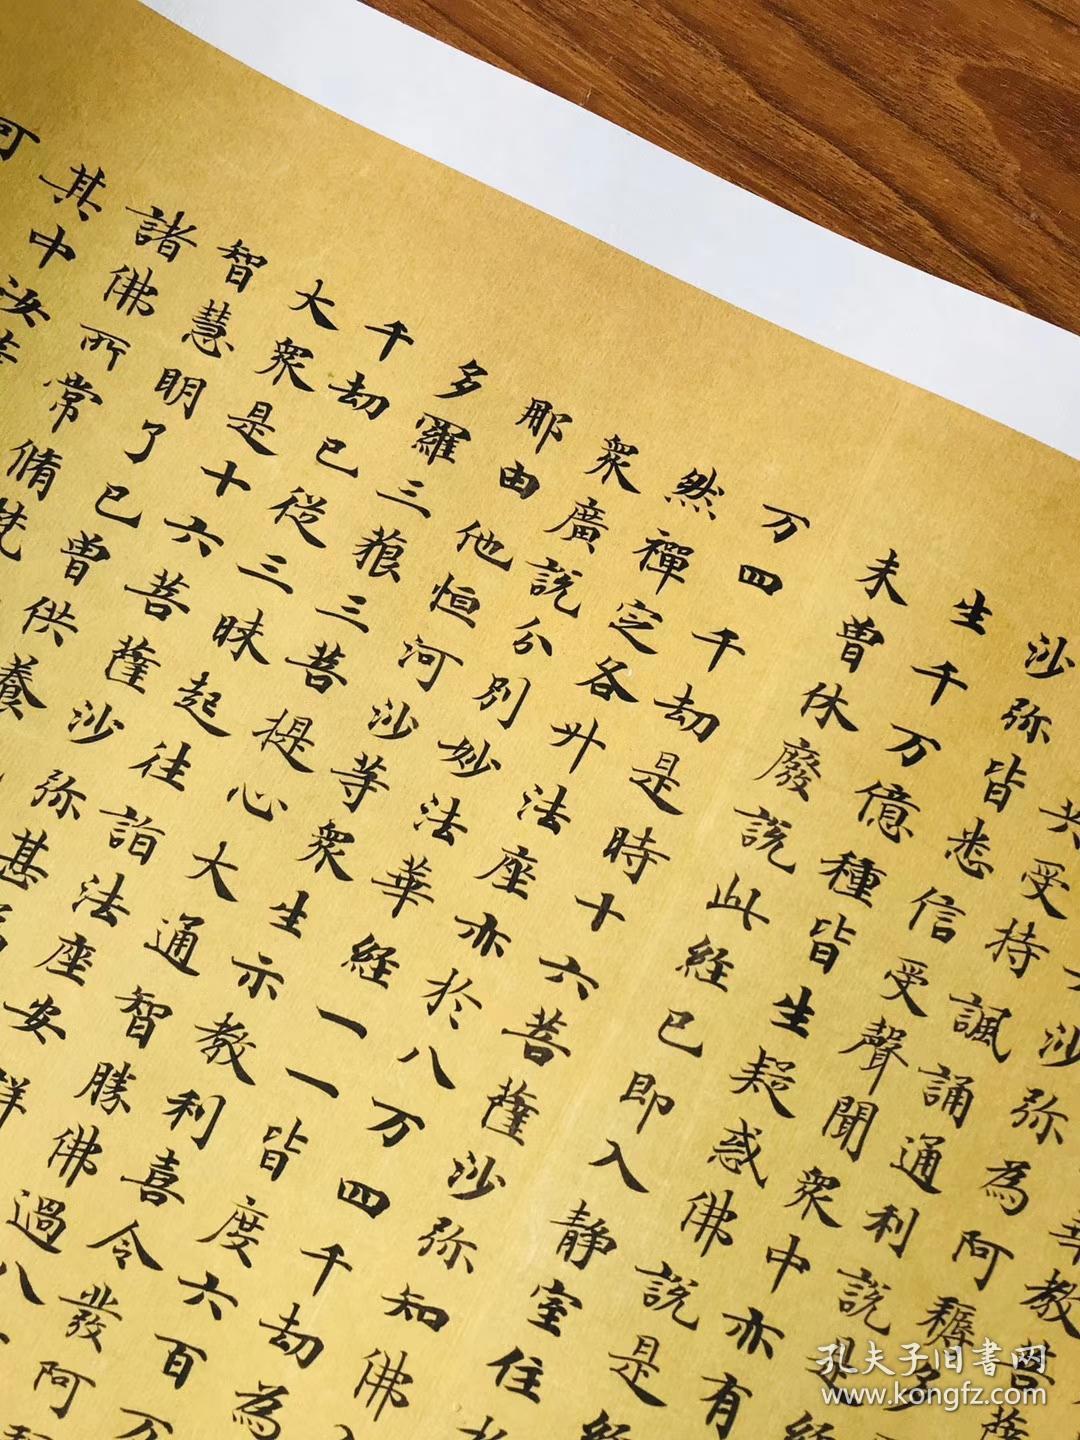 華教菩薩
沙弥為阿耨多
共受持諷誦通利說是經
沙弥皆悉信受聲聞眾中亦有
生千万億種皆生疑惑佛說是經
未曾休廢說此經已即入静室住於
万四千劫是時十六菩薩沙弥知佛入
然禪定各升法座亦於八万四千劫為
眾廣說分別妙法華經一一皆度六百万
那由他恒河沙等眾生示教利喜令發阿
多羅三藐三菩提心大通智勝佛過八
千劫已從三昧起往詣法座安祥
大眾是十六菩薩沙弥甚為
智慧明了已曾供養
諸佛所常脩梵
其中汝等
可
孔夫子旧書网
www.kongfz.com